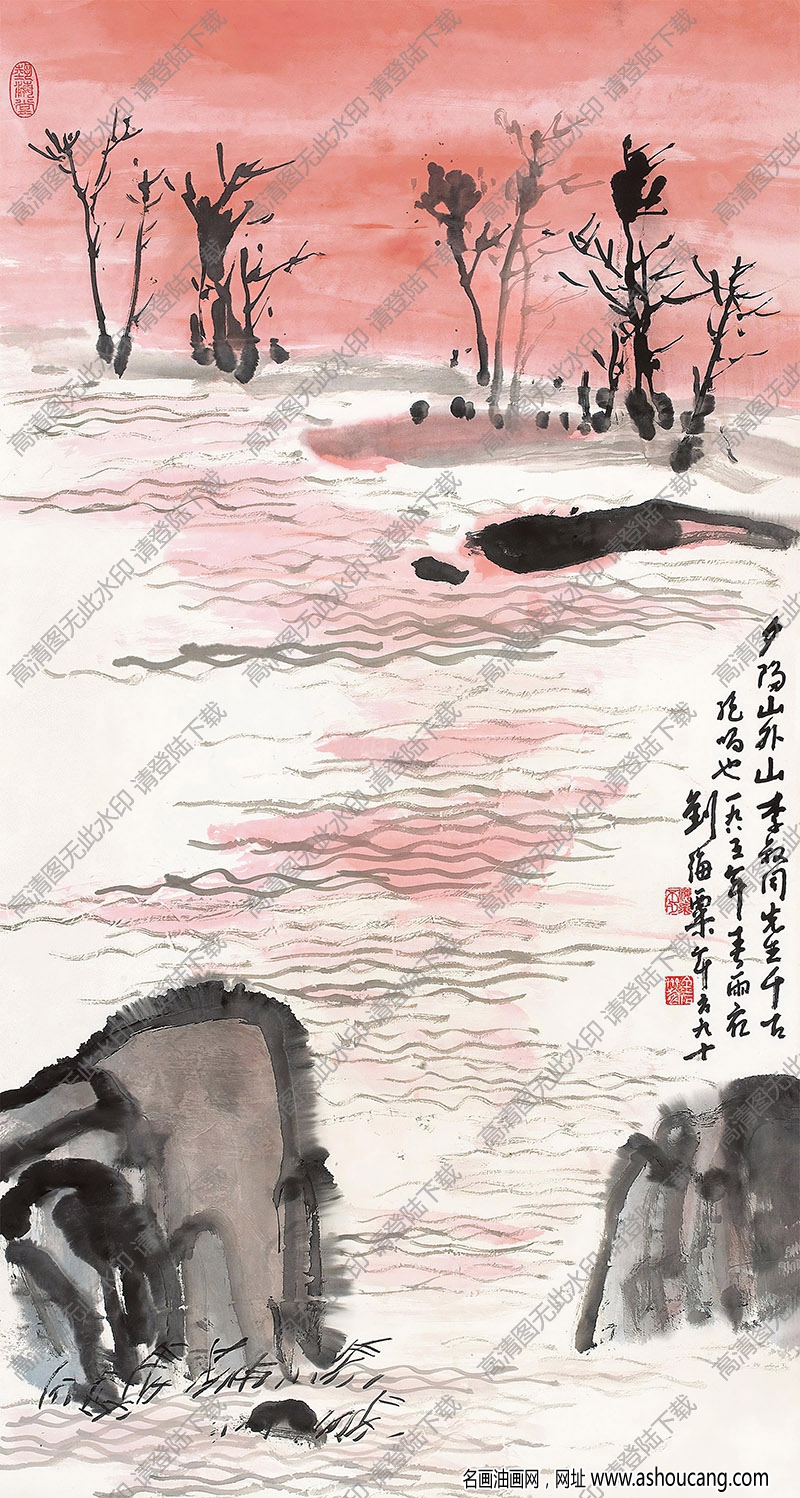 夕陽山外山李叔同先生千古
絶唱也一九八五年春雨夜
劉海粟年方九十
高清图无此水印 请登陆下载
名画油画网，网址 www.ashoucang.com